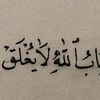 بَابُ اللَّهِ لَا يُغْلَقُ